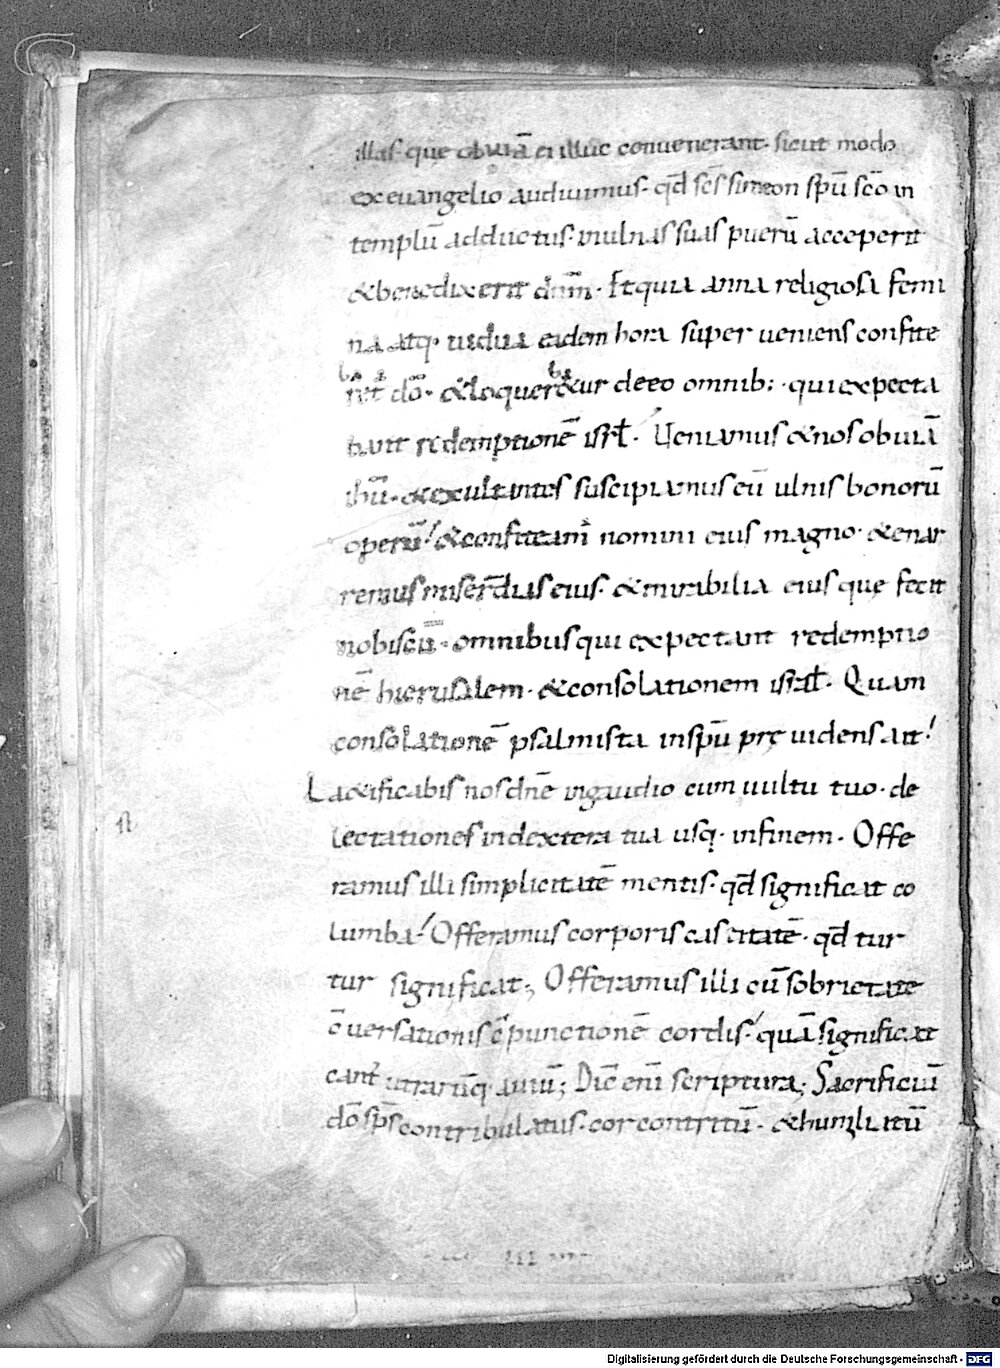 illas que obuiā ei illuc conuenerant· sicut modo
ex euangelio audiuimus· qđ scs̄ simeon spū scō in
templū adductus· inulnas suas puerū acceperit
&benedixerit dnm̄· Et quia anna religiosa femi
na atq· uidua eadem hora super ueniens confite
ret dō· &loquer&ur deeo omnib; · qui expecta
bant redemptionē isrł· Ueniamus &nos obuiā
ihū· &exultantes suscipiamus eū ulnis bonorū
operū! &confiteam̄ nomini eius magno· &enar
remus miserc̄dias eius· &mirabilia eius quę fecit
nobiscū· omnibus qui expectant redemptio
nē hierusalem· &consolationem isrł· Quam
consolationē psalmista inspū prę uidens ait!
L&ificabis nos dnē in gaudio cum uultu tuo· de
lectationes in dextera tua usq· in finem· Offe
ramus illi simplicitatē mentis· qđ significat co
lumba! Offeramus corporis castitatē· qđ tur
tur significat; Offeramus illi cū sobrietate
c̄uersationis c̄punctionē cordis· quā significat
cant' utrarūq· auiū; Dic̄ eni̅ scriptura; Sacrificiū
dō sps̄ contribulatus· cor contritū· &humiliatū